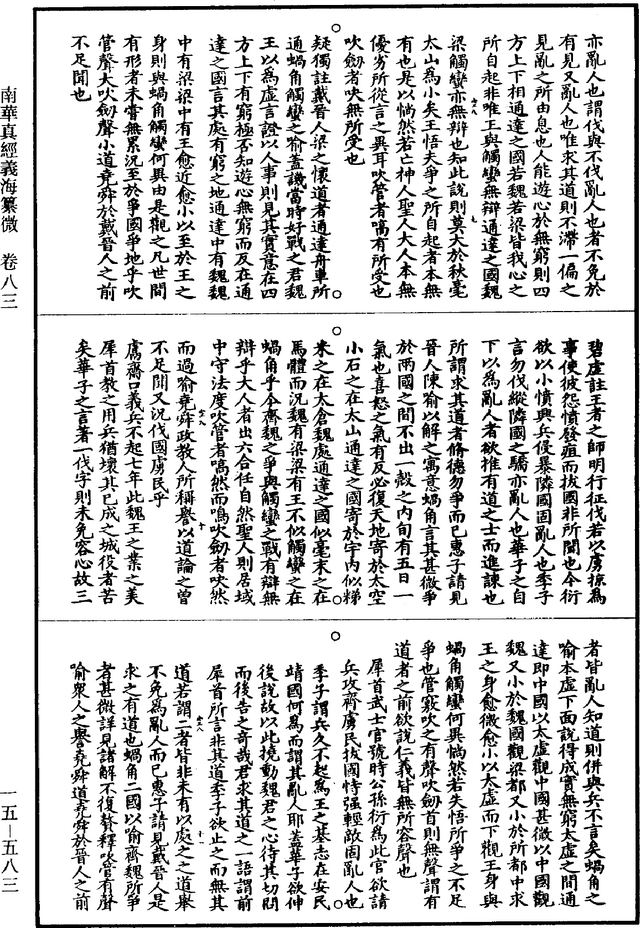 南華真經義海纂微　卷八三
一五—五八三
亦亂人也謂伐與不伐亂人也者不免於
有見又亂人也唯求其道則不滯一偏之
見亂之所由息也人能遊心於無窮則四
方上下相通達之國若魏若梁皆我心之
所自起非唯王與觸蠻無辯通達之國魏
梁觸蠻亦無辯也知此說則莫大於秋毫
太山為小矣王悟夫爭之所自起者本無
有也是以惝然若亡神人聖人大人本無
優劣所從言之異耳吹管者嗃有所受也
吹劍者吷無所受也
疑獨註戴晉人梁之懷道者通達舟車所
通蝸角觸蠻之喻蓋譏當時好戰之君魏
王以為虛言證以人事則見其實意在四
方上下有窮極否知遊心無窮而反在通
達之國言其處有窮之地通達中有魏魏
中有梁梁中有王愈近愈小以至於王之
身則與蝸角觸蠻何異由是觀之凡世間
有形者未嘗無累況至於爭國爭地乎吹
管聲大吹劍聲小道堯舜於戴晉人之前
不足聞也
碧虛註王者之師明行征伐若以虜掠為
事使彼怨憤發疽而拔國非所聞也今衍
欲以小憤興兵侵暴隣國固亂人也季子
言勿伐縱隣國之驕亦亂人也華子之自
下以為亂人者欲推有道之士而進諫也
所謂求其道者脩德勿爭而已惠子請見
晉人陳喻以解之寓意蝸角言其甚微爭
於兩國之間不出一殼之內旬有五日一
氣也喜怒之氣有反必復天地寄於太空
小石之在太山通達之國寄於宇內似稊
米之在太倉魏處通達之國似毫末之在
馬體而況魏有梁梁有王不似觸蠻之在
蝸角乎今齊魏之爭與觸蠻之戰有辯無
辯乎大人者出六合任自然聖人則居域
中守法度吹管者嗃然而鳴吹劍者吷然
而過喻堯舜政教人所稱譽以道論之曾
不足聞又況伐國虜民乎
鬳齋口義兵不起七年此魏王之業之美
犀首教之用兵猶壞其已成之城役者苦
矣華子之言著一伐字則未免容心故三
者皆亂人知道則併與兵不言矣蝸角之
喻本虛下面說得成實無窮太虛之間通
達即中國以太虛觀中國甚微以中國觀
魏又小於魏國觀梁都又小於所都中求
王之身愈微愈小以太虛而下觀王身與
蝸角觸蠻何異惝然若失悟所爭之不足
爭也管竅吹之有聲吹劍首則無聲謂有
道者之前欲說仁義皆無所容聲也
犀首武士官號時公孫衍為此官欲請
兵攻齊虜民拔國恃強輕敵固亂人也
季子謂兵久不起為王之基志在安民
靖國何為而謂其亂人耶蓋華子欲伸
後說故以此撓動魏君之心待其切問
而後告之奇哉君求其道之一語謂前
犀首所言非其道季子欲止之而無其
道若謂二者皆非未有以處之之道舉
不免為亂人而已惠子請見戴晉人是
求之有道也蝸角二國以喻齊魏所爭
者甚微詳見諸解不復贅釋吹管有聲
喻衆人之譽堯舜道堯舜於晉人之前